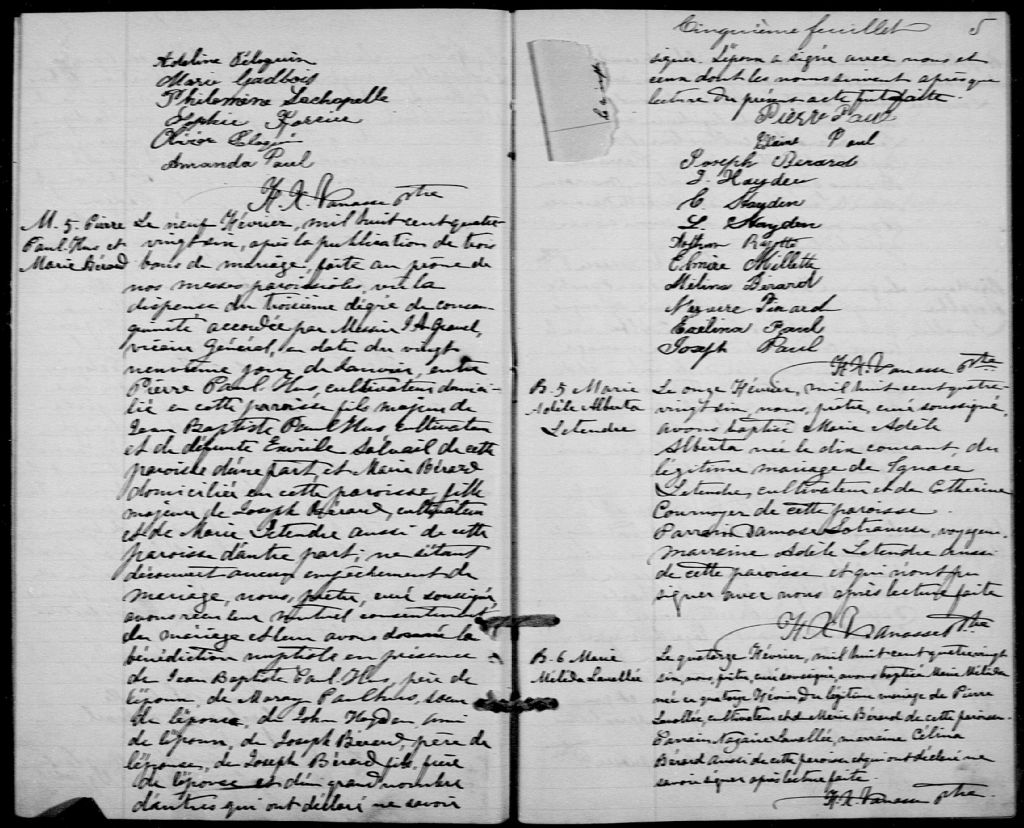 Adeline Péloquin
Marie Gadbois
Philomène Lachapelle
Sophie
Olivier
Amanda Paul
H. X. Vanasse ptre
M. 5. Pierre
Paul-Hus et
Marie Bérard
Le neuf Février, mil huit cent quatre
vingt six, après la publication de trois
bans de mariage, faite au prône de
nos messes paroissiales, vu la
dispense du troisième dégré de consan
guinité accordée par Messire J A Gravel,
vicaire Général, en date du vingt
neuvième jour de Janvier, entre
Pierre Paul Hus, cultivateur domici-
lié en cette paroisse fils majeur de
Jean Baptiste Paul Hus cultivateur
et de défunte Salvail de cette
paroisse d'une part, et Marie Bérard
domiciliée en cette paroisse, fille
majeure de Joseph Bérard, cultivateur
et de Marie Letendre aussi de cette
paroisse d'autre part; ne s'étant
découvert aucun empêchement de
mariage, nous, prêtre, curé soussigné,
avons reçu leur mutuel consentement
de mariage et leur avons donnée la
bénédiction nuptiale en présence
de Jean Baptiste Paul-Hus, père de
l'époux, de Paulhus, sœur
de l'époux, de John Hayden ami
de l'époux, de Joseph Bérard, père de
l'épouse, de Joseph Bérard fils, frère
de l'épouse et d'un grand nombre
d'autres qui ont déclaré ne savoir
Cinquième feuillet 5
signer. L'époux a signé avec nous et
ceux dont les noms suivent après que
lecture du présent acte fut faite.
Pierre Paul
Paul
Joseph Berard
J. Hayden
C Hayden
L. Hayden
Elmire Millette
Mélina Berard
Evelina Paul
Joseph Paul
H. X. Vanasse ptre
B. 5 Marie
Adèle Alberta
Letendre
Le onze Février, mil huit cent quatre
vingt six, nous, prêtre, curé soussigné,
avons baptisé Marie Adèle
Alberta née le dix courant, du
légitime mariage de Ignace
Letendre, cultivateur et de Catherine
Cournoyer de cette paroisse.
Parrain Damase Latraverse, voyageur
marraine Adèle Letendre aussi
de cette paroisse et qui n'ont pu
signer avec nous après lecture faite
H. X. Vanasse Ptre
B. 6 Marie
Mélida Lavallée
Le quatorze Février, mil huit cent quatre vingt
six, nous, prêtre, curé soussigné, avons baptisé Marie Mélida
née ce quatorze Février du légitime mariage de Pierre
Lavallée, cultivateur et de Marie Bérard de cette paroisse.
Parrain Nazaire Lavallée, marraine Célina
Bérard aussi de cette paroisse et qui ont déclaré ne
savoir signer après lecture faite.
H. X. Vanasse ptre.